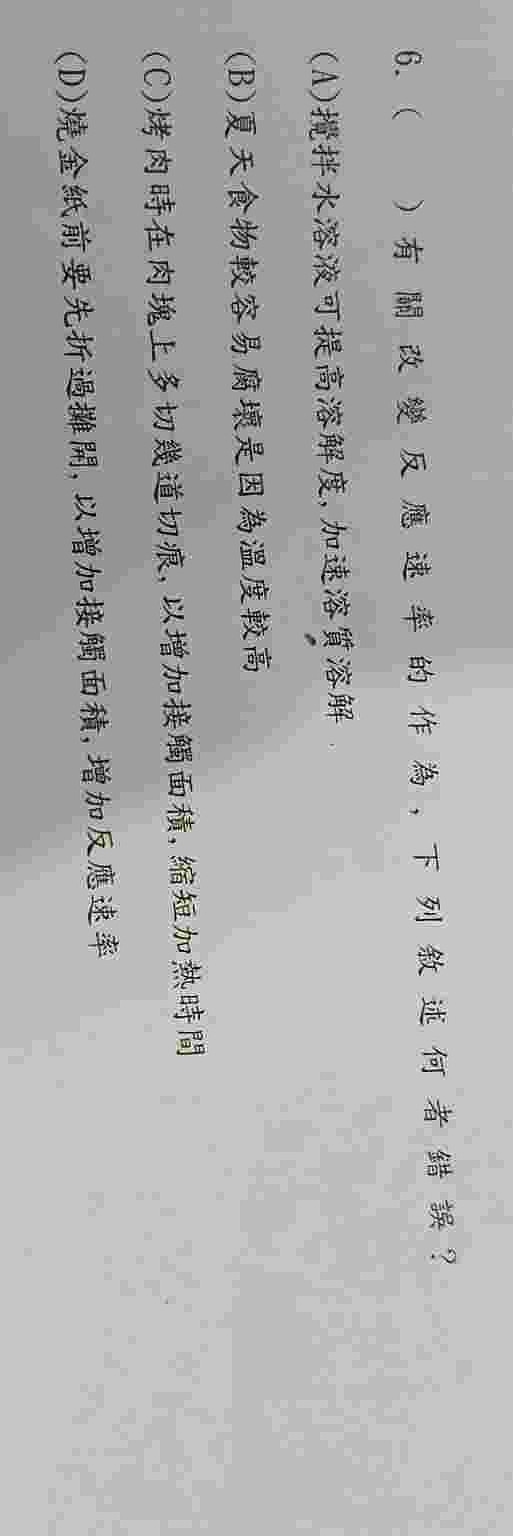 6. (　　) 有關改變反應速率的作為，下列敘述何者錯誤？
(A)攪拌水溶液可提高溶解度，加速溶質溶解
(B)夏天食物較容易腐壞是因為溫度較高
(C)烤肉時在肉塊上多切幾道切痕，以增加接觸面積，縮短加熱時間
(D)燒金紙前要先折過攤開，以增加接觸面積，增加反應速率